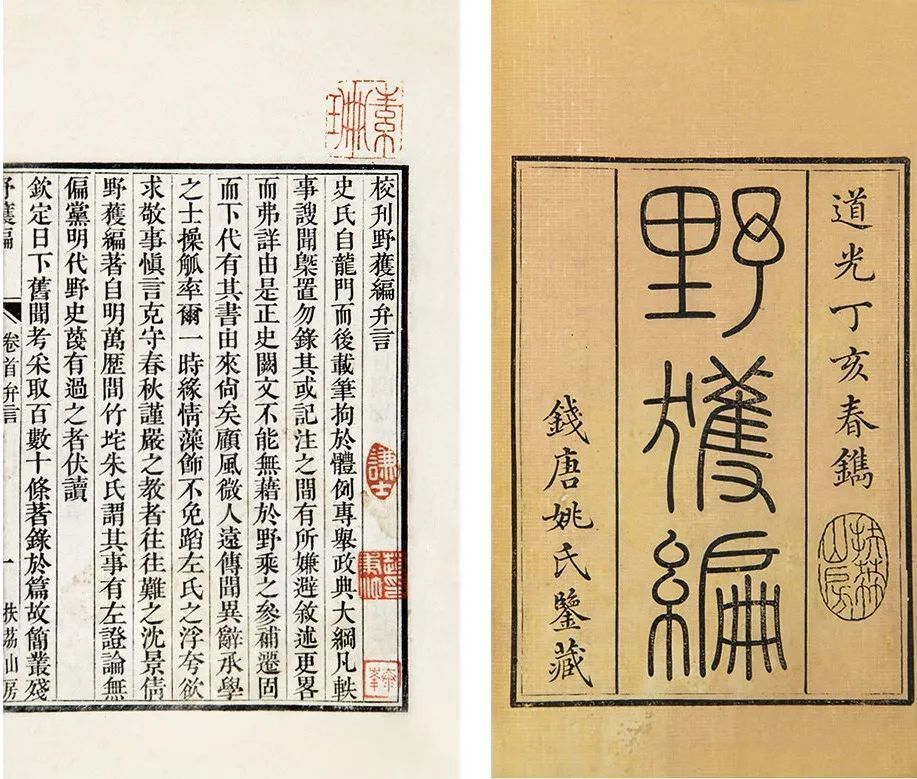 道光丁亥春鐫
扶荔山房
野獲編
錢唐姚氏鑒藏
校刊野獲編弁言
謙士
史氏自龍門而後載筆拘於體例專舉政典大綱凡軼
事謏聞槩置勿錄其或記注之間有所嫌避敘述更畧
而弗詳由是正史闕文不能無藉於野乘之參補遷固
而下代有其書由來尚矣顧風微人遠傳聞異辭承學
之士操觚率爾一時緣情藻飾不免蹈左氏之浮夸欲
求敬事慎言克守春秋謹嚴之教者往往難之沈景倩
野獲編著自明萬歷間竹垞朱氏謂其事有左證論無
偏黨明代野史蔑有過之者伏讀
欽定日下舊聞考采取百數十條著錄於篇故簡叢殘
野獲編 卷首弁言 一 扶荔山房